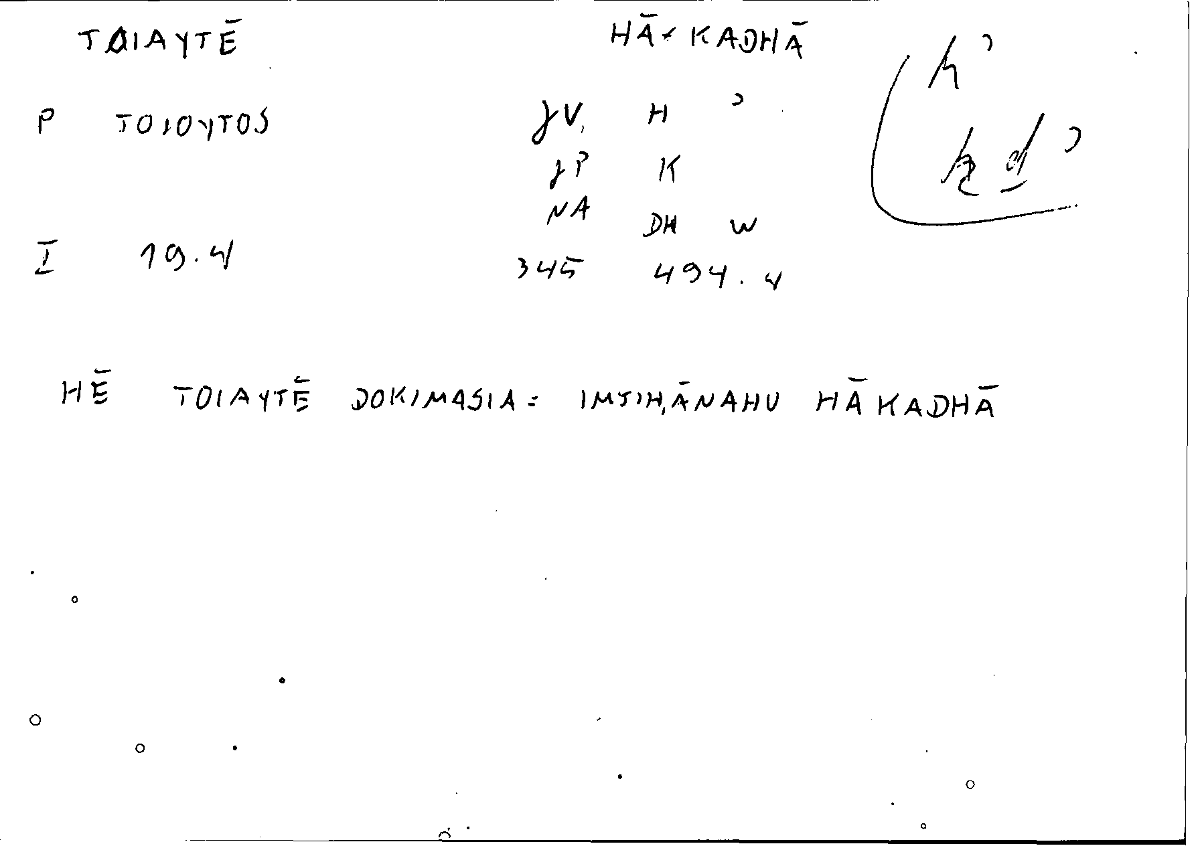 TOIAYTĒ HĀ-KADHĀ
h ʾ
P TOIOYTOS JV, H ʾ
JP K
k d ʾ
NA DH W
I 19.4 345 494.4
HĒ TOIAYTĒ DOKIMASIA = IMTIḤĀNAHU HĀKADHĀ